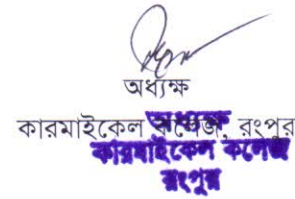 অধ্যক্ষ
কারমাইকেল কলেজ, রংপুর
অধ্যক্ষ
কারমাইকেল কলেজ
রংপুর